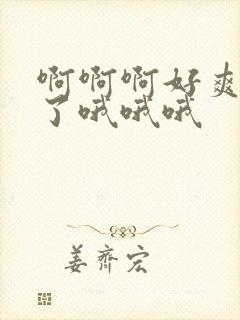 啊啊啊好爽
了哦哦哦
姜齐宏